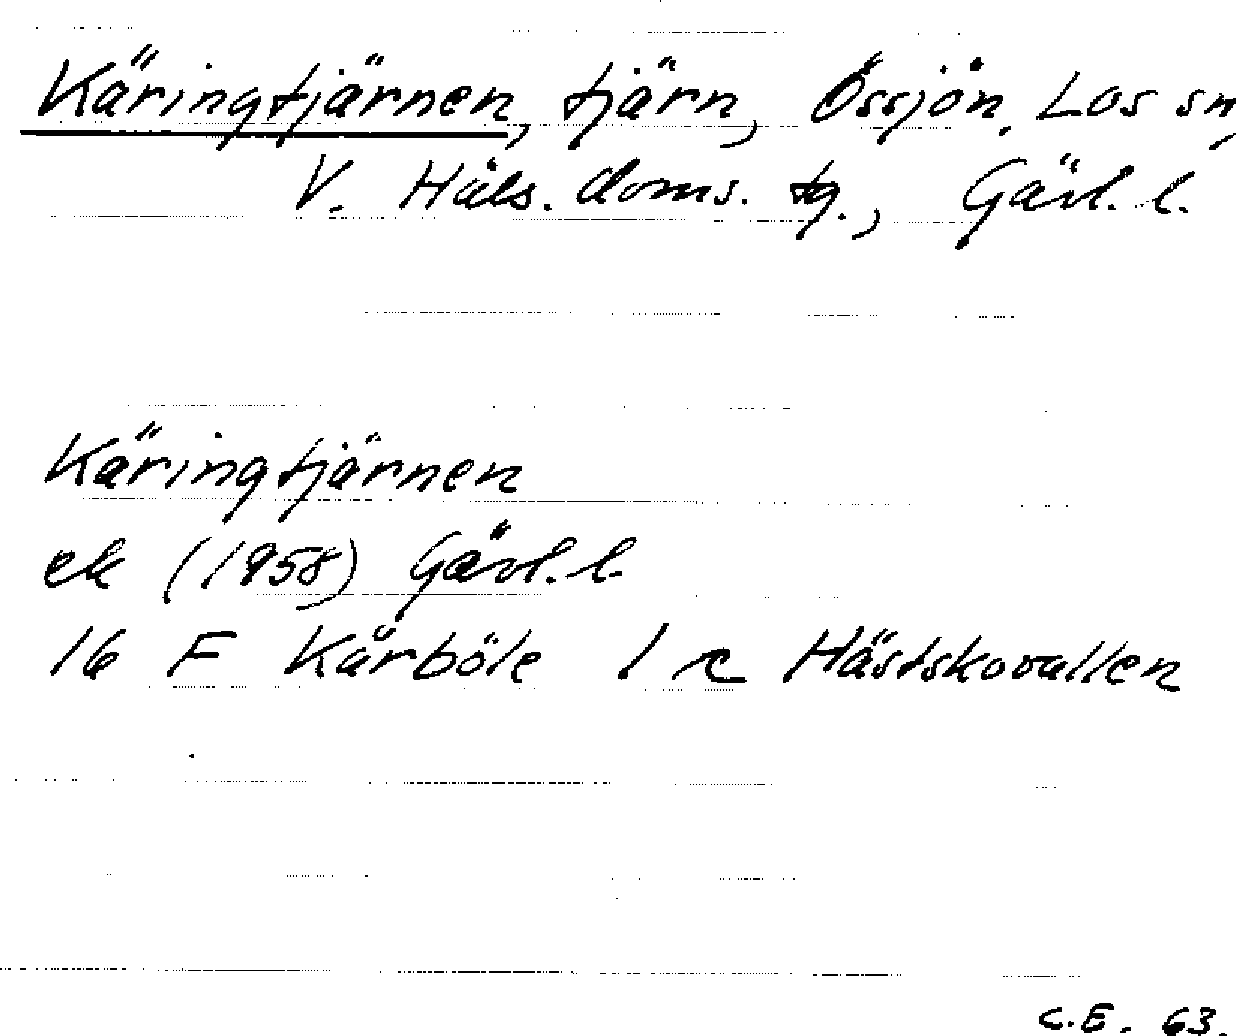 Käringtjärnen, tjärn, Össjön, Los sn,
V. Häls. doms. tg., Gävl. l.
Käringtjärnen
ek (1958) Gävl. l.
16 F Kårböle 1 c Hästskovallen
C.E. 63.